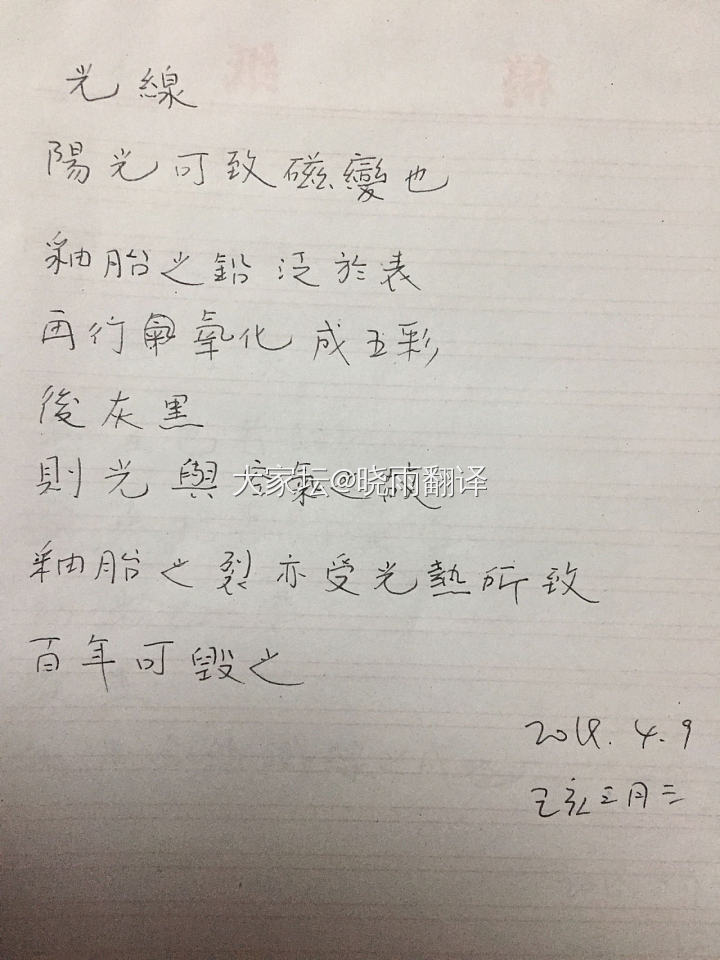 光線
陽光可致磁變也
釉胎之鉛泛於表
再行氧化成五彩
後灰黑
則光與空氣之故
大家坛@晓雨翻译
釉胎之裂亦受光熱所致
百年可毀之
2019.4.9
己亥三月三